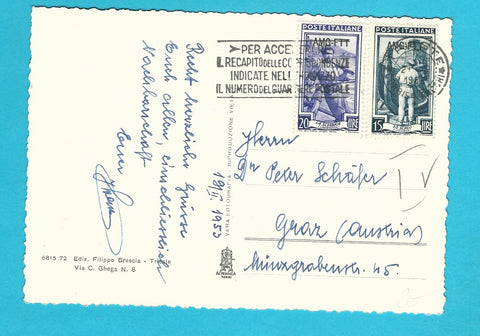 Recht herzliche Grüsse
Euch allen, einschliesslich
Nachbarschaft
Euer
19/II 1953
6815 72 Ediz. Filippo Brescia - Trieste
Via C. Ghega N. 8
VERA FOTOGRAFIA - RIPRODUZIONE VIETATA
PER ACCE
IL RECAPITO DELLE CORRISPONDENZE
INDICATE NELL' INDIRIZZO
IL NUMERO DEL QUAR POSTALE
POSTE ITALIANE
AMG-FTT
20 LIRE
POSTE ITALIANE
AMG-FTT
15 LIRE
Herrn
Dr Peter Schäfer
Graz (Austria)
Münzgrabenstr. 45.